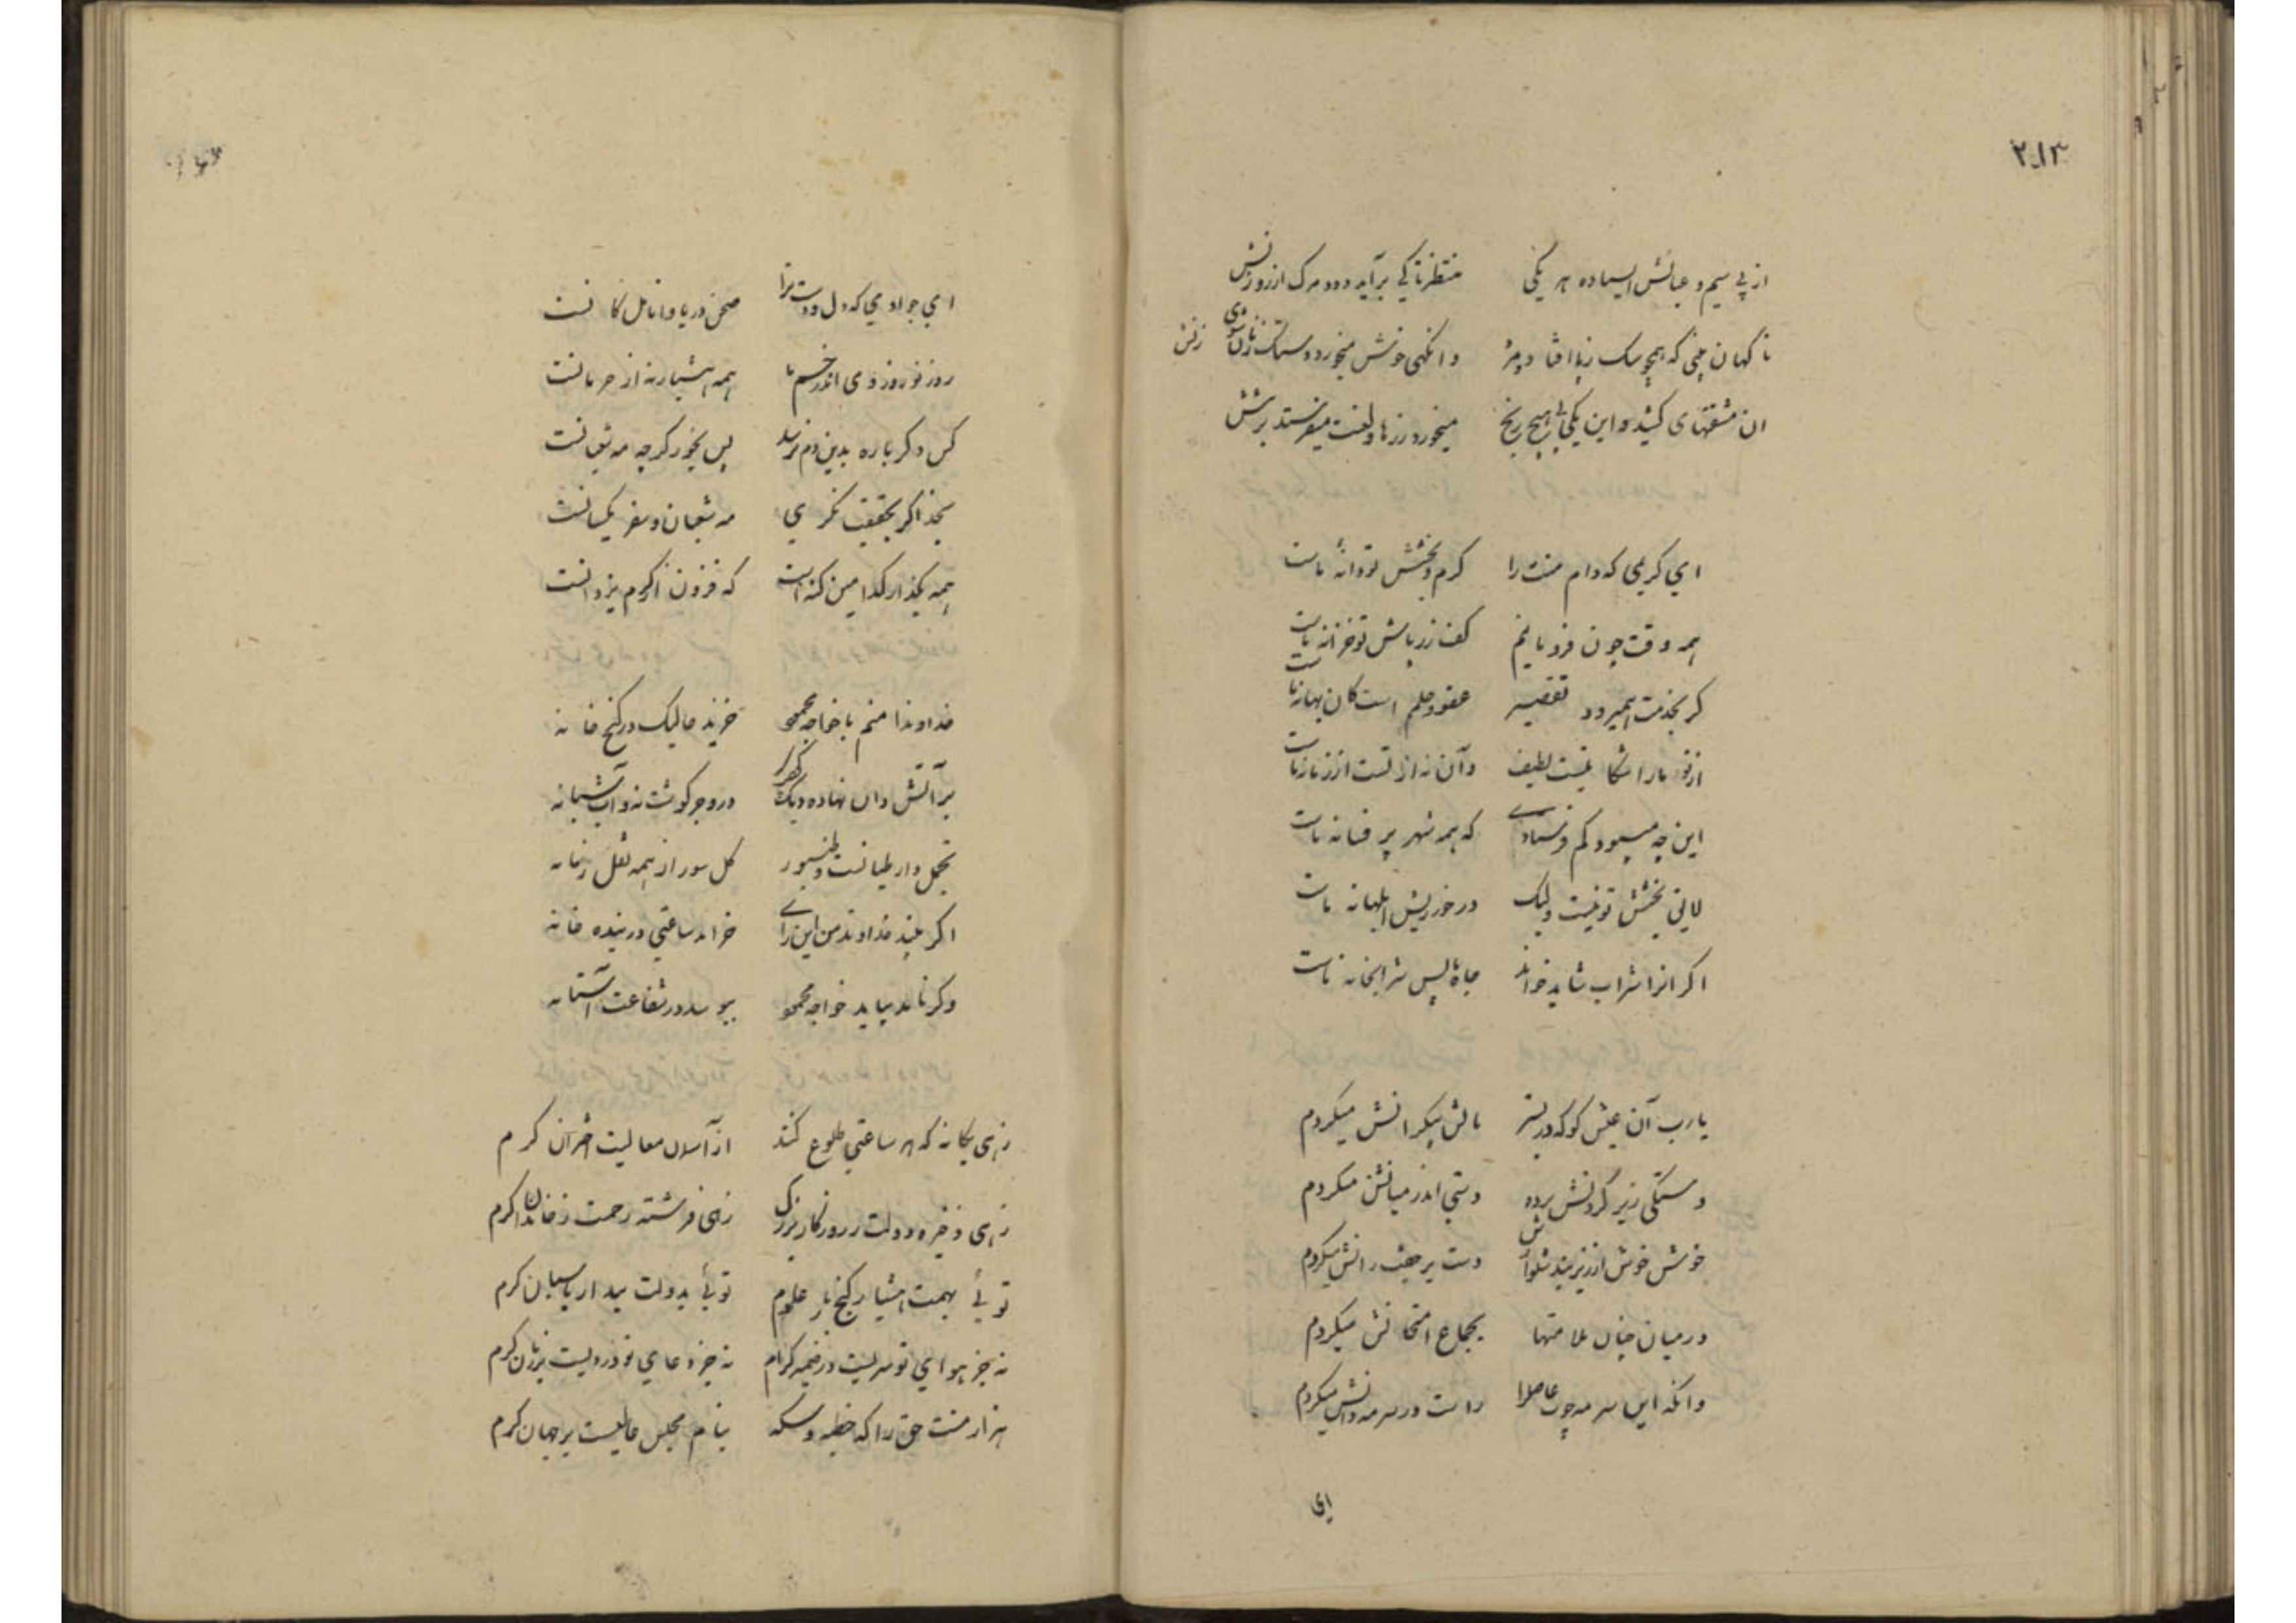 ۲۱۳
از پی سیم و عبالش ایستاده هر یکی منتظر تا کی برآید دود مرک از روزنش
ناکهان بینی که همچو سک زپا افتاد و مرد وانکهی خوش میخورد
ان مشقتهای کشید و این یکی بی هیچ رنج میخورد زرها و لعنت میفرستد برتنش
ای کریمی که دام منت را کرم و بخشش تو دانهٔ ماست
همه وقت چون فرو مانیم کف زرپاش تو خزانه ماست
کر بخدمت همیرود تقصیر عفو و حلم است کان بهانه ماست
از تو ما را شکایتیست لطیف وآن نه از تست از زمانه ماست
این چه میبود کم فرستادی که همه شهر پر فسانه ماست
لایق بخشش تو نیست ولیک در خور ریش ابلهانه ماست
اکر انرا شراب شاید خواند چاه پس شرابخانه ماست
یارب آن عیش کو که در بستر مالش بیکرانش میکردم
دستکی زیر کردنش برده دستی اندر میانش میکردم
خوش خوش از زیر بند شلوارش دست بر جفت رانش میکردم
در میان چنان علامتها بجماع امتحانش میکردم
وانکه این سرمه چوب عاصرا راست در سرمه دانش میکردم
ای
ای جوادی که دل و دست ترا صحن دریا و انامل کانست
روز نوروز و می اندر خم ما همه هشیار نه از حرمانست
کس دکرباره بدین دم نرسد پس بخور کرچه مه شعبانست
بخدا کر بحقیقت نکری مه شعبان و صفر یکسانست
همه بکذار کدامین کنه است که فزون از کرم یزدانست
خداوندا منم با خواجه محمود خزیده حالیک در کنج خانه
بر آتش دان نهاده دیک در وجر کوشت نه و آب شبانه
تجمل دار طیانست و طنبور کل سور از همه نقل زمانه
اکر بیند خداوند من این رای خرامد ساعتی در بنده خانه
وکر ناید بیاید خواجه محمود ببوسد در شفاعت آستانه
زهی یکانه که هر ساعتی طلوع کند از آسمان معالیت اختران کرم
زهی ذخیره دولت ز روزکار بزرک زهی فرشته رحمت ز خاندان کرم
توئی بهمت هشیار کنج بار علوم توئی بدولت بیدار پاسبان کرم
نه جز هوای تو سریست در ضمیر کرام نه جز دعای تو دردیست بر زبان کرم
هزار منت حق را که خطبه و سکه بنام مجلس عالیست بر جهان کرم